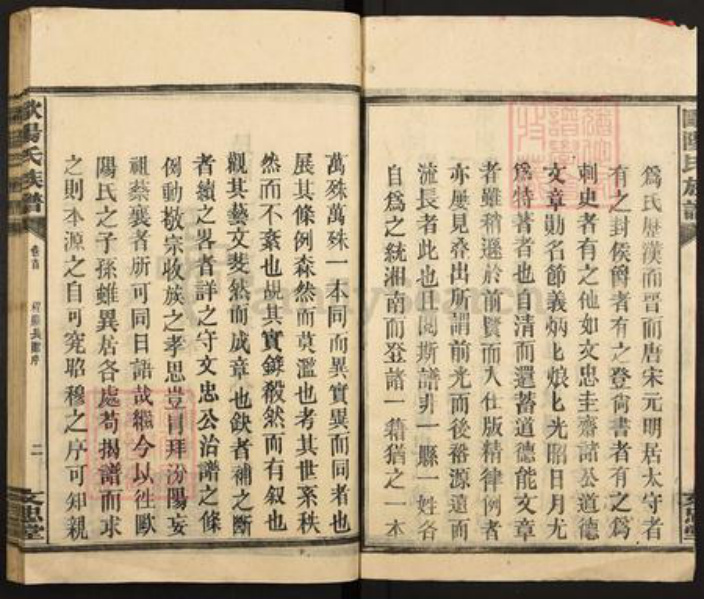 爲氏歷漢而晉而唐宋元明居太守者
有之封侯爵者有之登尚書者有之爲
刺史者有之他如文忠圭齋諸公道德
文章勛名節義炳炳烺烺光昭日月尤
爲特著者也自清而還蓄道德能文章
者雖稍遜於前賢而入仕版精律例者
亦屢見疊出所謂前光而後裕源遠而
流長者此也且閱斯譜非一縣一姓各
自爲之統湘南而登諸一籍猶之一本
萬殊萬殊一本同而異實異而同者也
展其條例森然而莫濫也考其世系秩
然而不紊也覘其實錄殺然而有叙也
觀其藝文斐然而成章也缺者補之斷
者續之畧者詳之守文忠公治譜之條
例動敬宗收族之孝思豈冐拜汾陽妄
祖蔡襄者所可同日語哉繼今以往歐
陽氏之子孫雖異居各處苟揭譜而求
之則本源之自可究昭穆之序可知親
歐陽氏族譜
卷首
二
文思堂